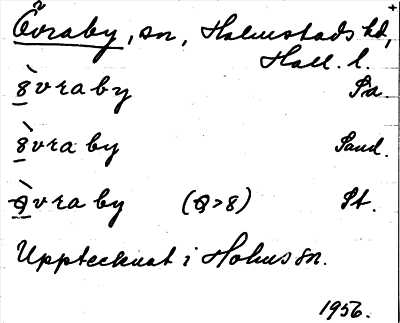 Övraby, sn, Halmstads hd,
Hall. l.
8̀vraby Pa.
8̀vraby Sand.
Ꝋ̀vraby (Ꝋ>8) St.
Upptecknat i Holms sn.
1956.